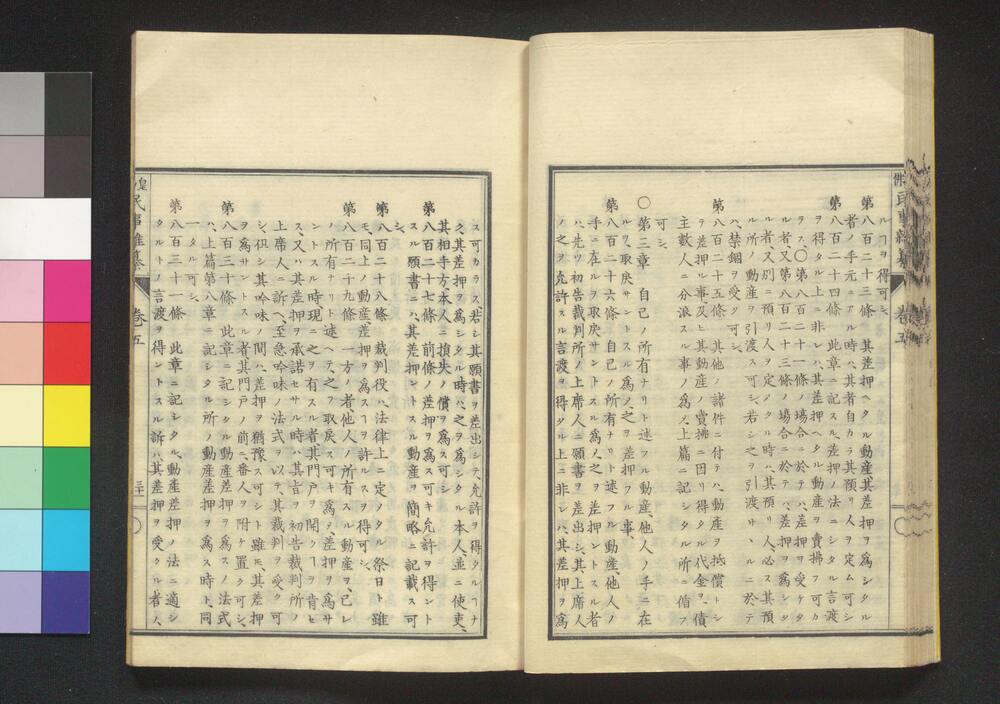 ルヿヲ得可シ
第八百二十三條 其差押ヘタル動産其差押ヲ爲シタル
者ノ手元ニアル時ハ、其者自カラ其預リ人ヲ定ム可シ
第八百二十四條 此章ニ記スル、差押ノ法ニシタル言渡
ヲ得タル上ニ非レハ、其差押ヘタル動産ヲ賣拂フ可カ
ラス、〇第八百二十一條ノ場合ニ於テハ、差押ヲ受ケタ
ル者、又第八百二十三條ノ場合ニ於テハ、差押ヲ爲シタ
ル者、又別ニ預リ人ヲ定メタル時ハ、其預リ人、必ス其預
ル所ノ動産ヲ引渡ス可シ若シ之ヲ引渡サヽルニ於テ
ハ、禁錮ヲ受ク可シ、
第八百二十五條 其他ノ諸件ニ付テハ、動産ヲ抵償トシ
テ差押ル事、及ヒ其動産ノ賣拂ニ因リ得タル代金ヲ、債
主數人ニ分派スル事ノ爲メ、上篇ニ記シタル所ニ循フ
可シ、
〇第三章 自己ノ所有ナリト述フル動産、他人ノ手ニ在
ルヲ取戻サントスル爲メ、之ヲ差押フル事、
第八百二十六條 自己ノ所有ナリト述フル動産、他人ノ
手ニ在ルヲ取戻サントスル爲メ、之ヲ差押ントスル者
ハ、先ツ初告裁判所ノ上席人ニ願書ヲ差出シ、其上席人
ノ之ヲ允許スル言渡ヲ得タル上ニ非レハ、其差押ヲ爲
ス可カラス若シ其願書ヲ差出シテ、允許ヲ得タルヿナ
ク其差押ヲ爲シタル時ハ、之ヲ爲シタル本人、並ニ使吏、
其相手方本人ニ損失ノ償ヲ爲ス可シ
第八百二十七條 前條ノ差押ヲ爲ス可キ允許ヲ得ント
スル願書ニハ、其差押ントスル動産ヲ簡略ニ記載ス可
シ、
第八百二十八條 裁判役ハ、法律上ニ定メタル祭日ト雖
モ、同上ノ動産差押ヲ爲スヿヲ許ルスヲ得可シ、
第八百二十九條 一方ノ者他人ノ所有スル動産ヲ、己レ
ノ所有ナリト述ヘテ、之ヲ取戻ス可キ爲メ差押ヲ爲サ
ントスル時、現ニ之ヲ有スル者、其門戸ヲ開クヿヲ肯セ
ス、又ハ其差押ヲ承諾セサル時ハ、其旨ヲ初告裁判所ノ
上席人ニ訴ヘ、至急吟味ノ法式ヲ以テ、其裁判ヲ受ク可
シ、但シ其吟味ノ間ハ、差押ヲ猶豫ス可シト雖モ、其差押
ヲ爲サントスル者、其門戸ノ前ニ番人ヲ附ケ置ク可シ、
第八百三十條 此章ニ記シタル動産差押ヲ爲スノ法式
ハ、上篇第八章ニ記シタル所ノ動産差押ヲ爲ス時ト、同
一タル可シ、
第八百三十一條 此章ニ記シタル、動産差押ノ法ニ適シ
タルトノ言渡ヲ得ントスル訴ハ、其差押ヲ受クル者ノ人
卷五
三十一